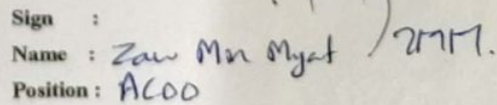 Sign :
Name : Zaw Min Myat / ZMM.
Position : ACOO